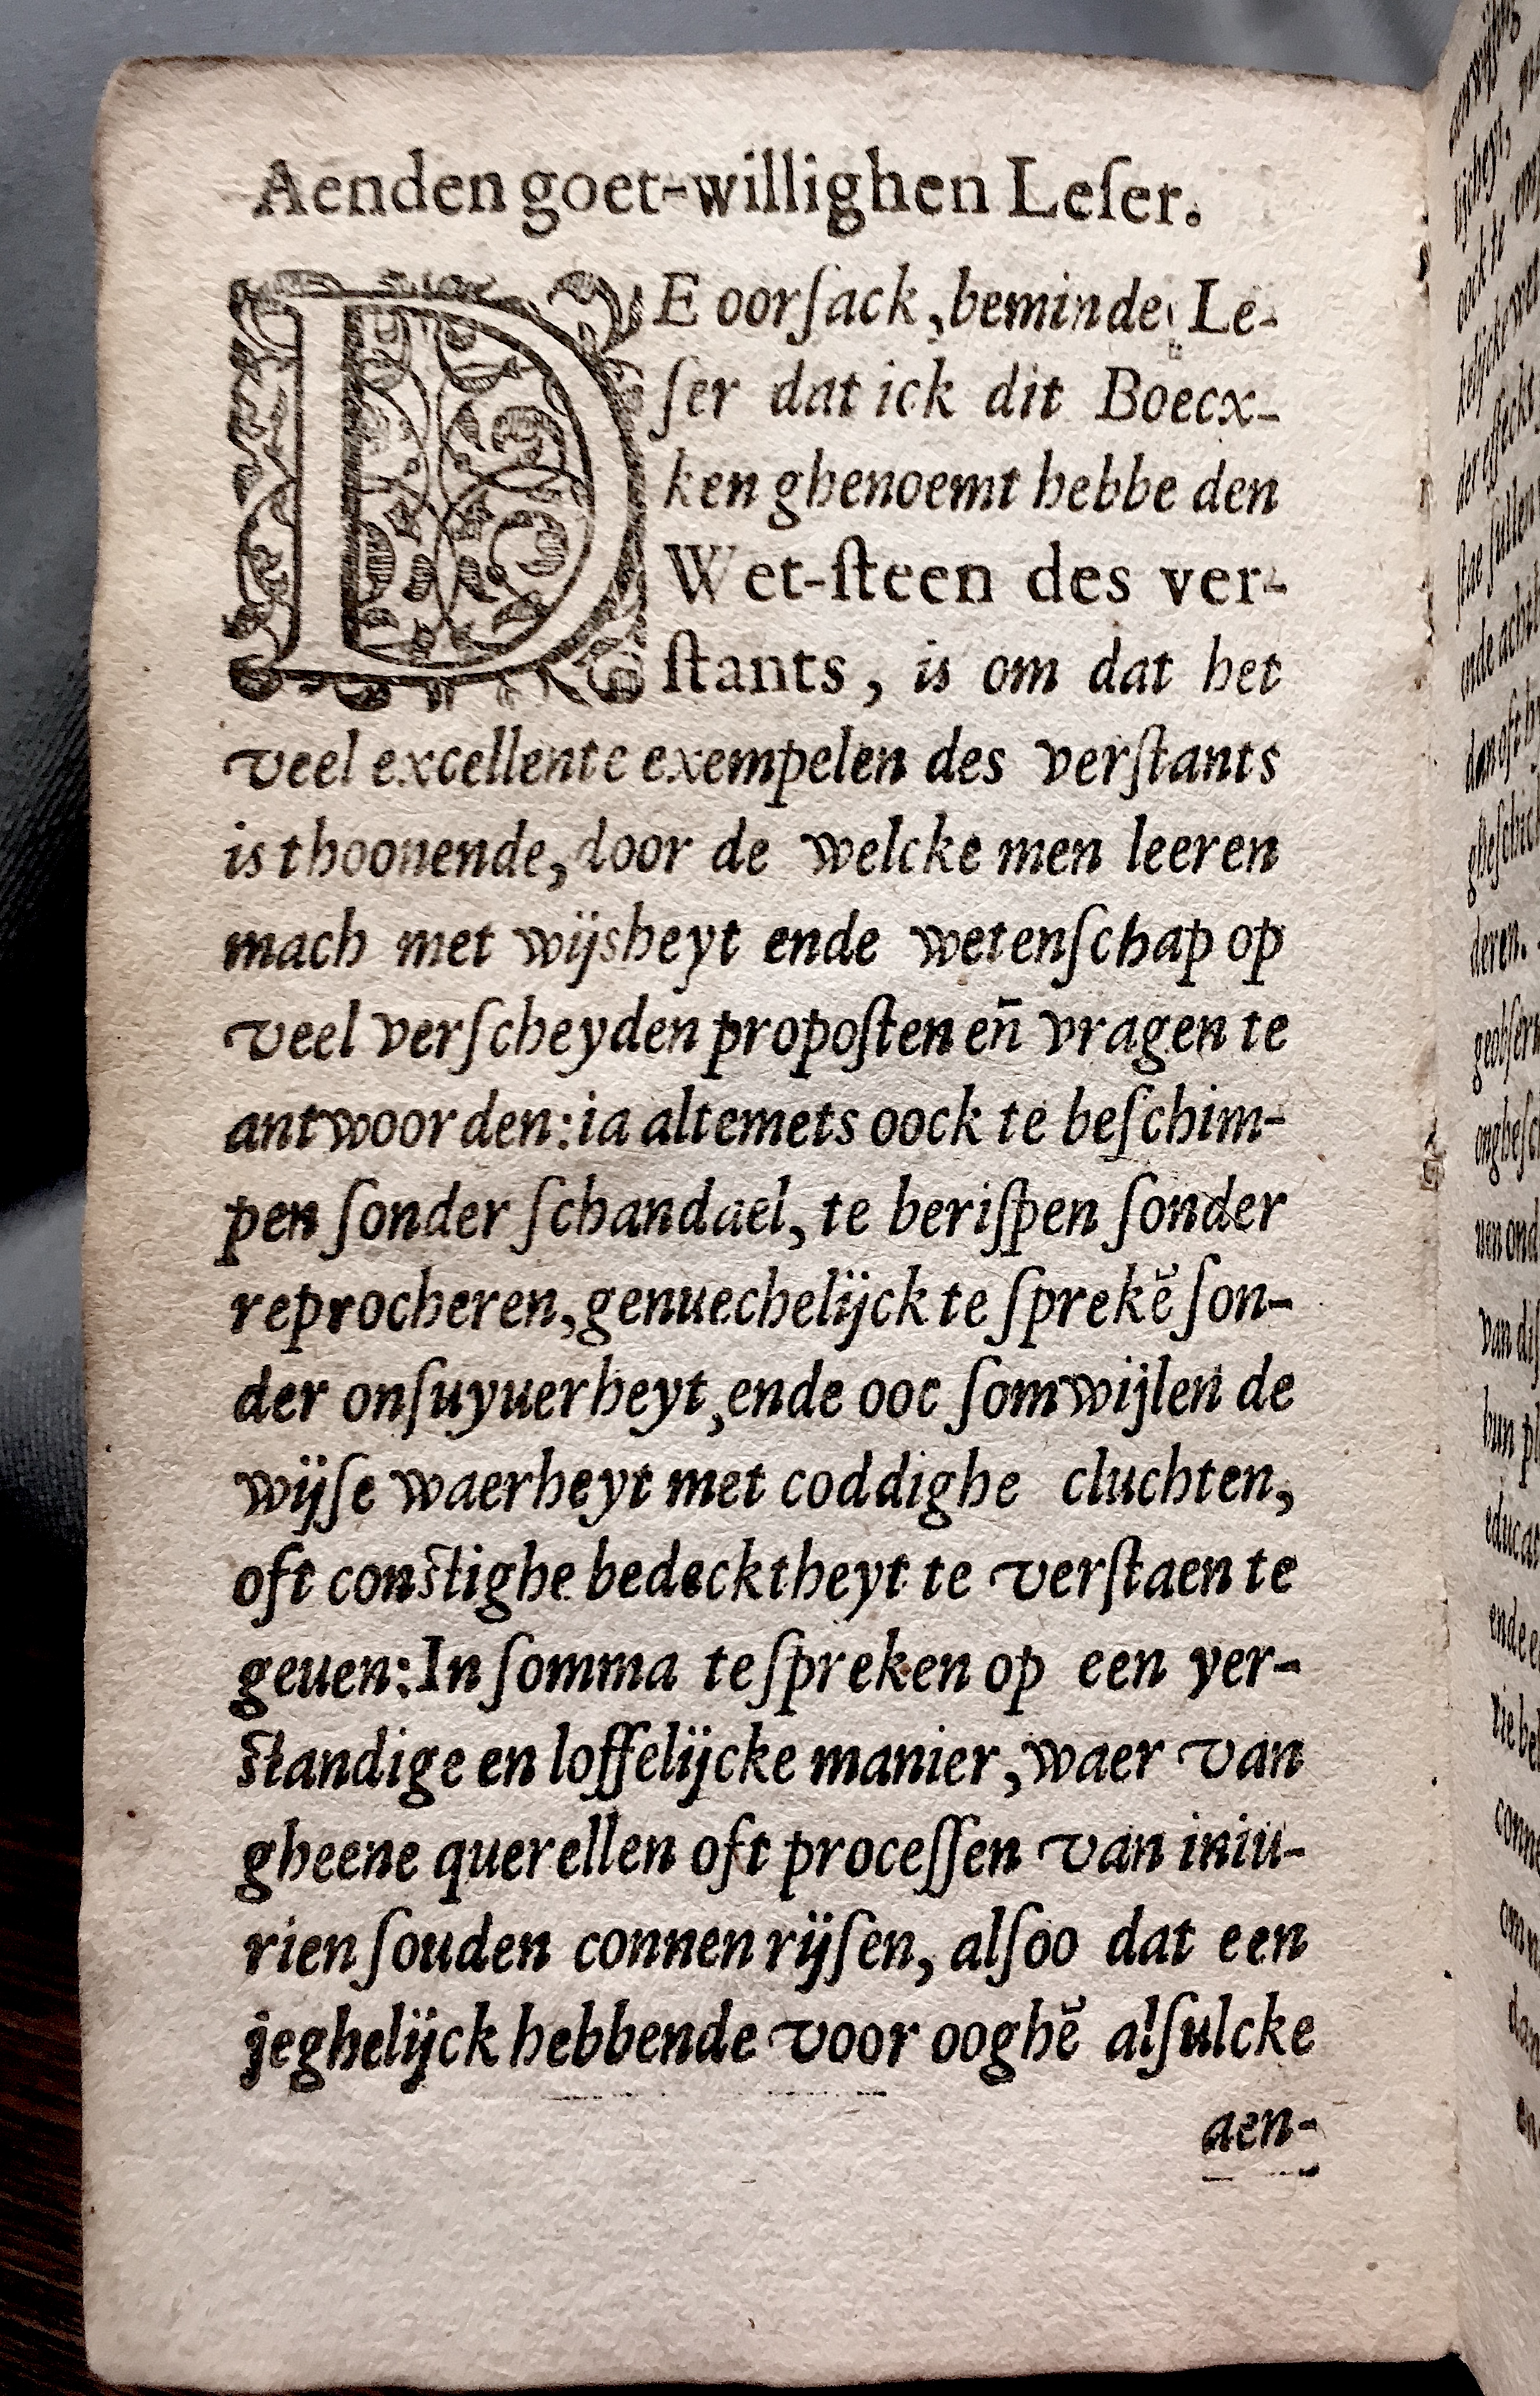 Aenden goet-willighen Leſer.
DE oorſack, beminde Le-
ſer dat ick dit Boecx-
ken ghenoemt hebbe den
Wet-ſteen des ver-
ſtants, is om dat het
veel excellente exempelen des verſtants
is thoonende, door de welcke men leeren
mach met wijsheyt ende wetenſchap op
veel verſcheyden propoſten en̄ vragen te
antwoorden: ia altemets oock te beſchim-
pen ſonder ſchandael, te beriſpen ſonder
reprocheren, genuechelijck te ſprekē ſon-
der onſuyuerheyt, ende ooc ſomwijlen de
wijſe waerheyt met coddighe cluchten,
oft conſtighe bedecktheyt te verſtaen te
geuen: In ſomma te ſpreken op een ver-
ſtandige en loffelijcke manier, waer van
gheene querellen oft proceſſen van iniu-
rien ſouden connen rijſen, alſoo dat een
jeghelijck hebbende voor ooghē alſulcke
aen-